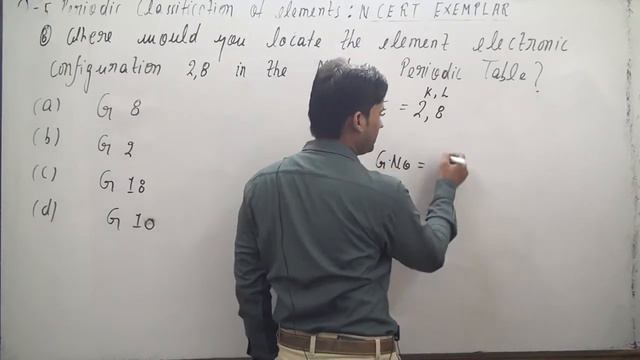 Periodic Classification of elements: NCERT EXEMPLAR
⑧ Where would you locate the element electronic
configuration 2,8 in the Periodic Table?
K, L
= 2, 8
(a) G 8
(b) G 2
(c) G 18
(d) G 10
G.No =